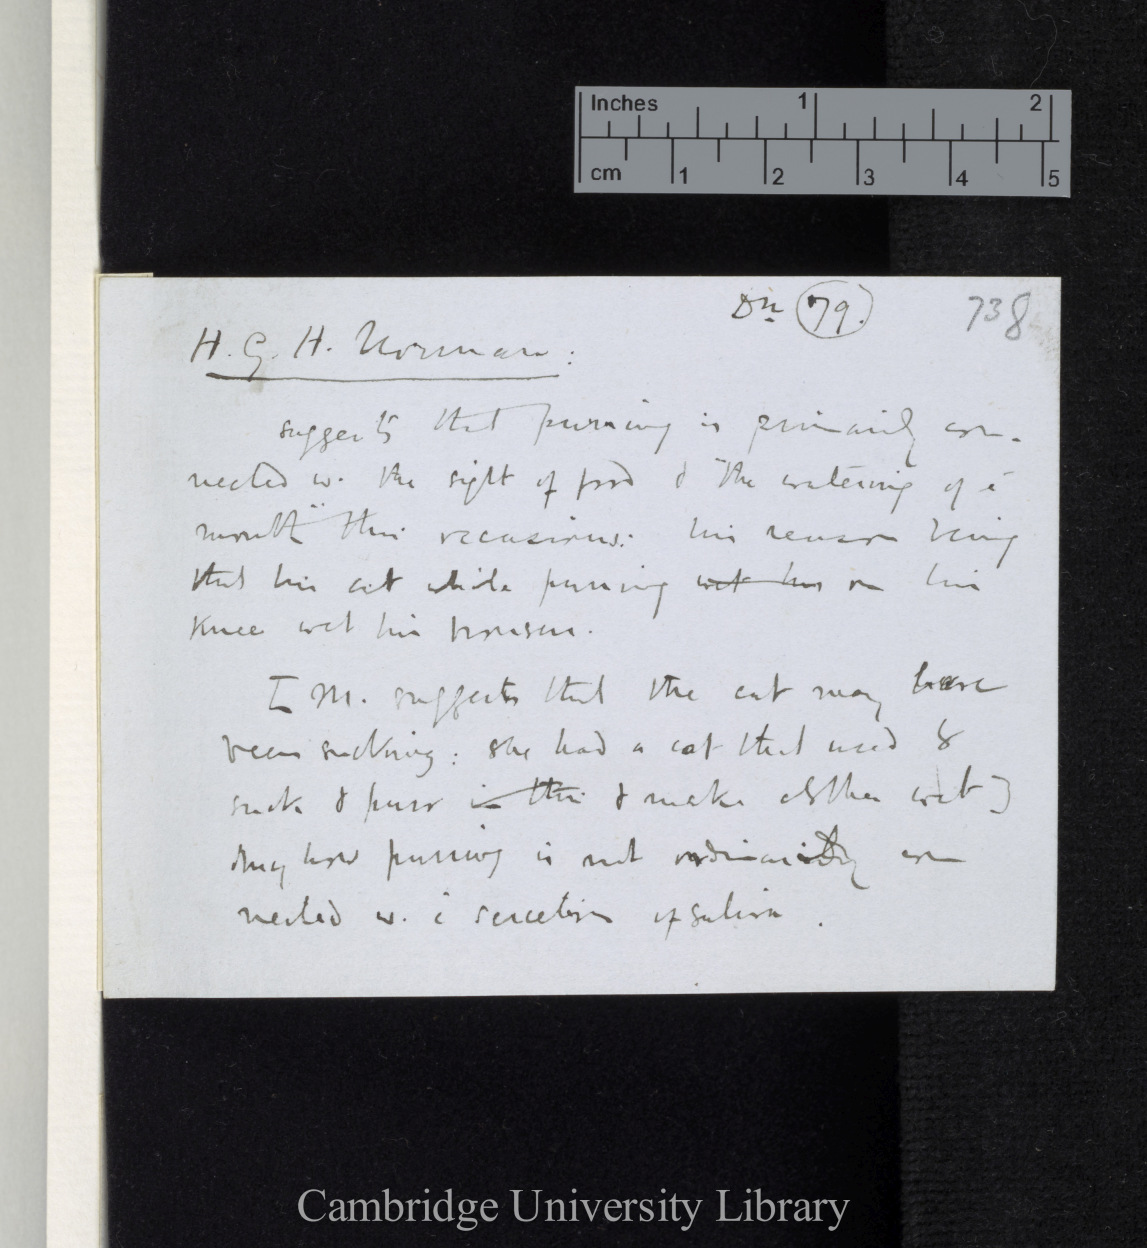 Inches 1 2
cm 1 2 3 4 5
Dn 79. 738
H. G. H. Norman:
suggests that purring is primarily con-
nected w. the sight of food & "the watering of
mouth" this occasions: his reason being
that his cat while purring wet his on his
knee wet his trousers.
M. suggests that the cat may have
been sucking: she had a cat that used to
suck & purr in this & make clothes wet]
Anyhow purring is not ordinarily con
nected w. secretion of saliva.
Cambridge University Library